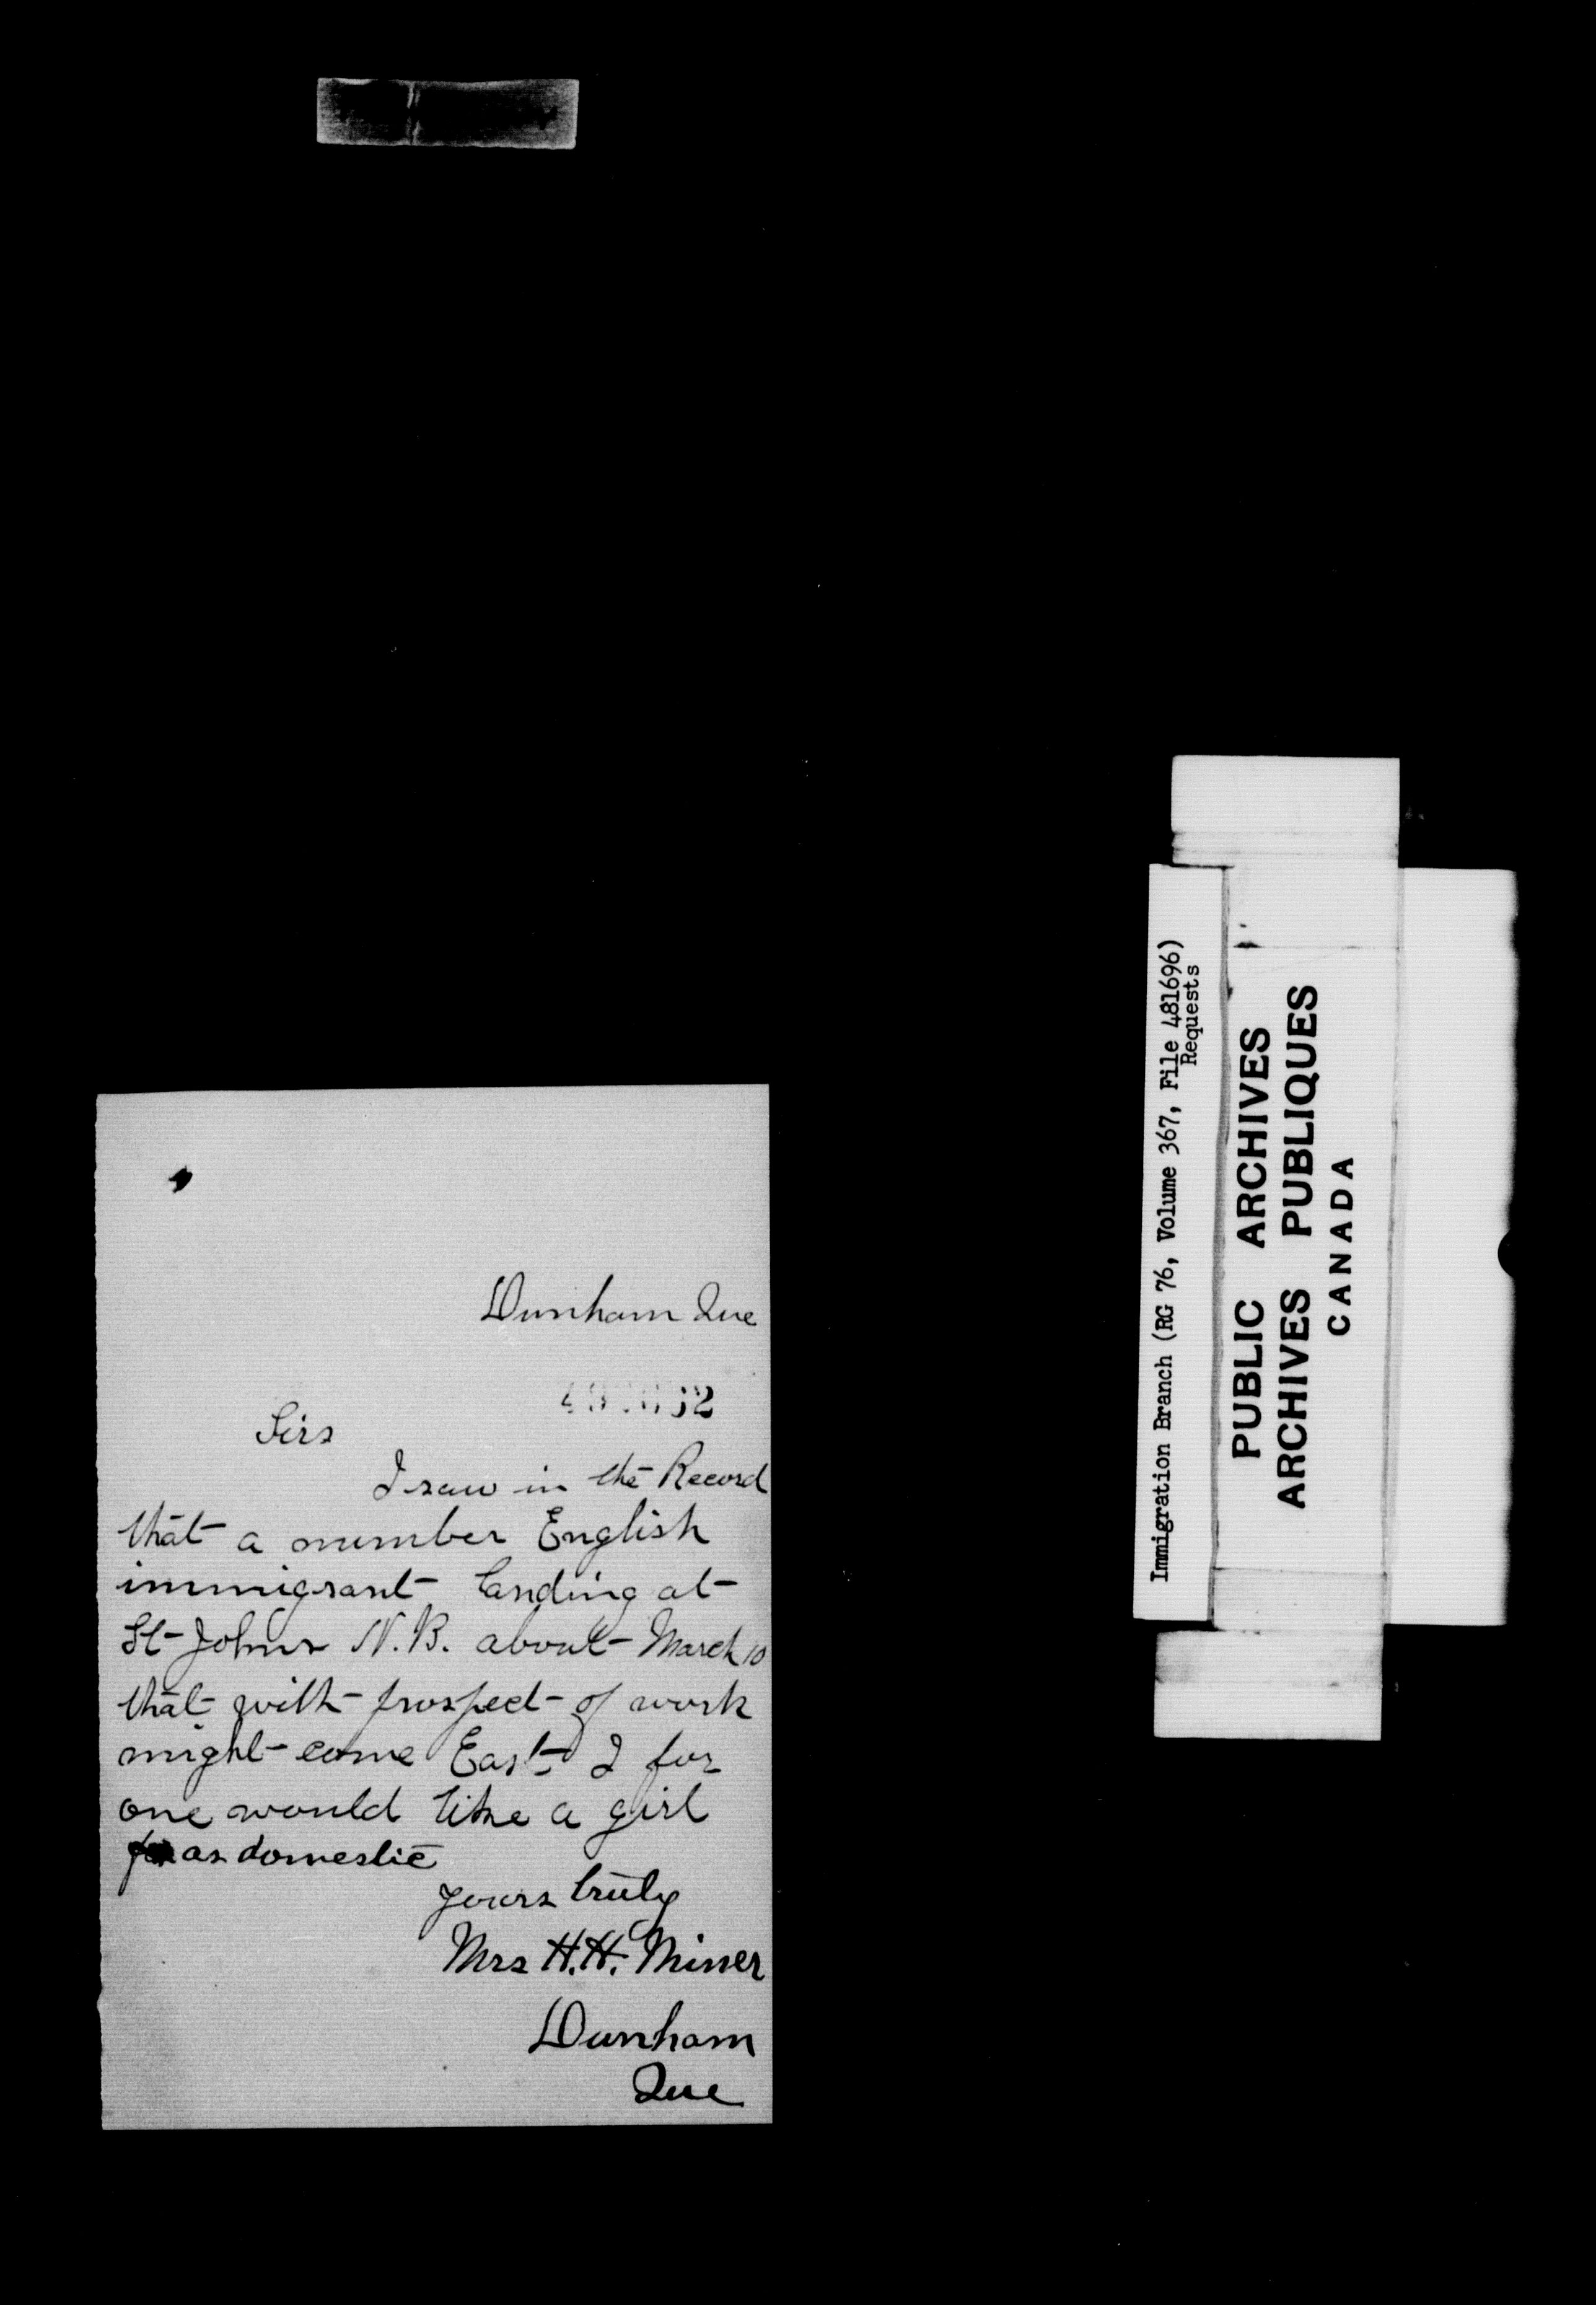 Dunham Que
Sirs
I saw in the Record
that a number English
immigrant landing at
St Johns N.B. about March 10
that with prospect of work
might come East I for
one would like a girl
as domestic
yours truly
Mrs H.H. Miner
Dunham
Que
Immigration Branch (RG 76, Volume 367, File 481696)
Requests
PUBLIC ARCHIVES
ARCHIVES PUBLIQUES
CANADA